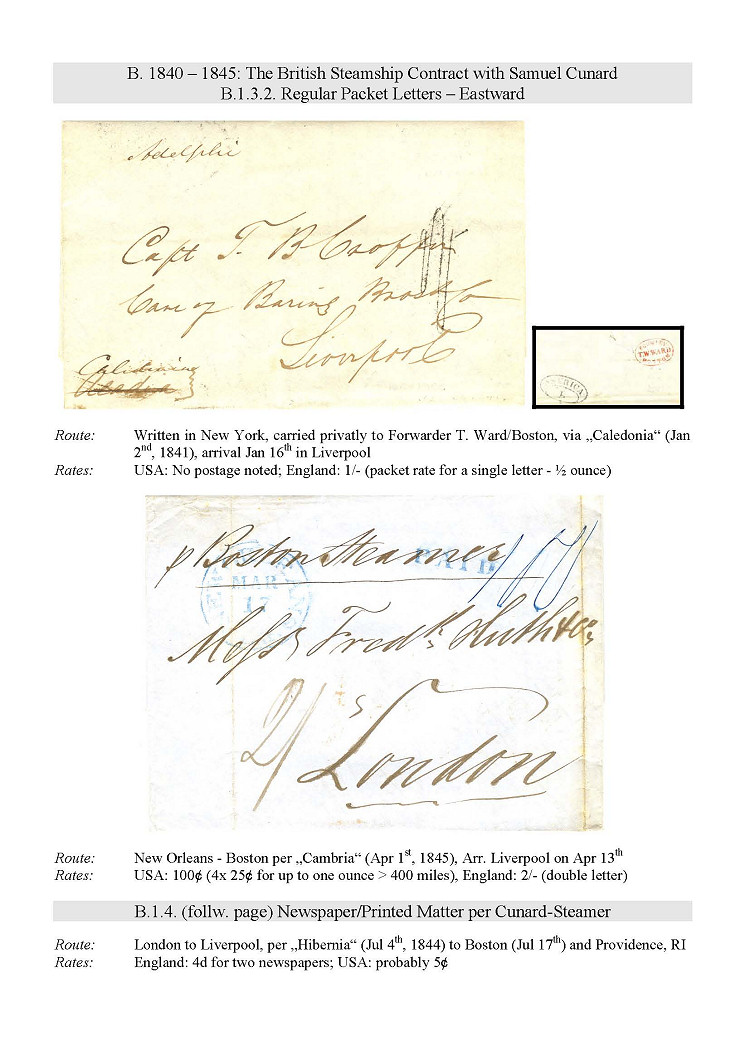 B. 1840 – 1845: The British Steamship Contract with Samuel Cunard
B.1.3.2. Regular Packet Letters – Eastward
Adelphi
Capt T. B Croffin
Care of Baring Bros & Co
Liverpool
Calidonia
Acadia
AMERICA
L
T.W.WARD
Route: Written in New York, carried privatly to Forwarder T. Ward/Boston, via „Caledonia“ (Jan
2nd, 1841), arrival Jan 16th in Liverpool
Rates: USA: No postage noted; England: 1/- (packet rate for a single letter - ½ ounce)
p Boston Steamer
PAID
MAR
17
Messrs Fredk Huth & Co
2/
London
Route: New Orleans - Boston per „Cambria“ (Apr 1st, 1845), Arr. Liverpool on Apr 13th
Rates: USA: 100¢ (4x 25¢ for up to one ounce > 400 miles), England: 2/- (double letter)
B.1.4. (follw. page) Newspaper/Printed Matter per Cunard-Steamer
Route: London to Liverpool, per „Hibernia“ (Jul 4th, 1844) to Boston (Jul 17th) and Providence, RI
Rates: England: 4d for two newspapers; USA: probably 5¢